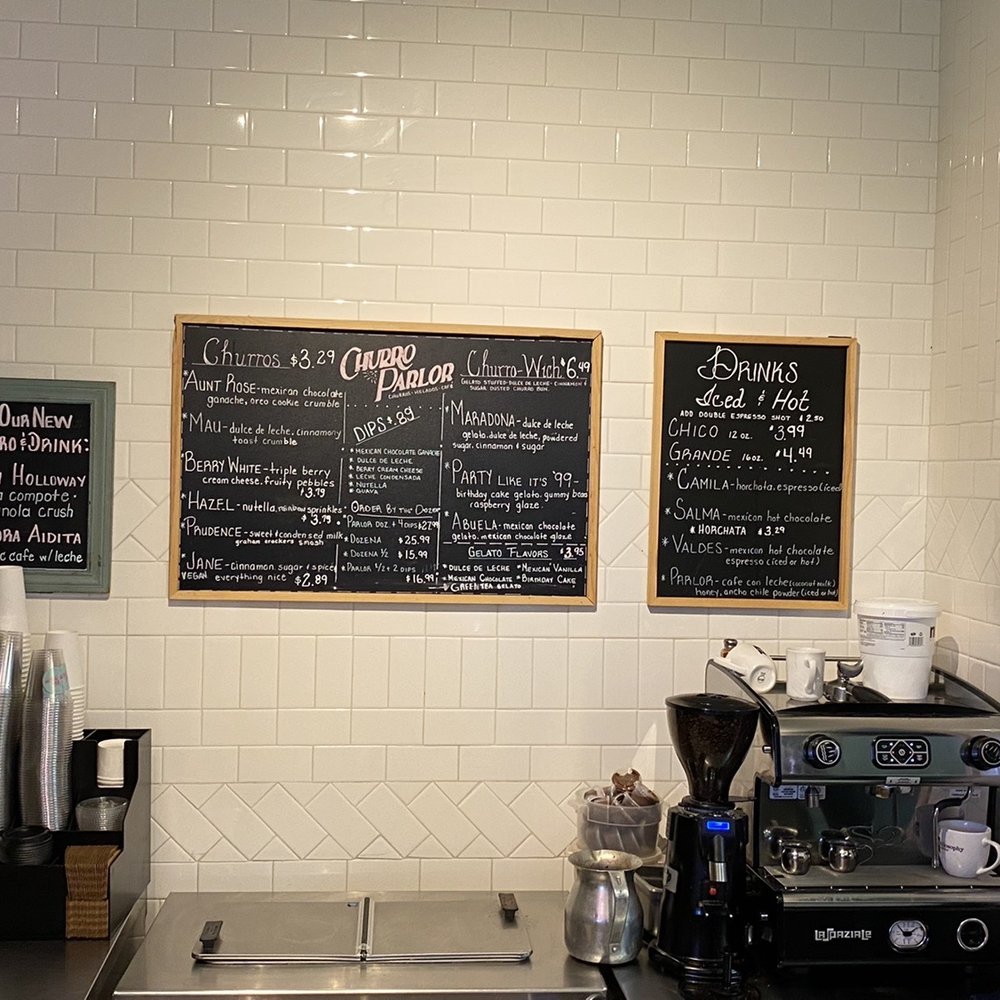 OUR NEW
RO & DRINK:
HOLLOWAY
compote
nola crush
RA AIDITA
c cafe w/leche
Churros $3.29
*AUNT ROSE-mexican chocolate
ganache, oreo cookie crumble
*MAU-dulce de leche, cinnamony
toast crumble
*BERRY WHITE-triple berry
cream cheese, fruity pebbles
$3.79
*HAZEL-nutella, rainbow sprinkles
$3.79
*PRUDENCE-sweet condensed milk
graham crackers smash
*JANE-cinnamon sugar & spice
VEGAN everything nice" $2.89
CHURRO
PARLOR
CHURROS·HELADOS·CAFE
DIPS $.89
*MEXICAN CHOCOLATE GANACHE
*DULCE DE LECHE
*BERRY CREAM CHEESE
*LECHE CONDENSADA
*NUTELLA
*GUAVA
ORDER BY THE DOZEN
*PARLOR DOZ. + 4 DIPS $27.99
*DOZENA $25.99
*DOZENA 1/2 $15.99
*PARLOR 1/2 + 2 DIPS
$16.99
Churro-Wich $6.49
GELATO STUFFED-DULCE DE LECHE-CINNAMON &
SUGAR DUSTED CHURRO BUN.
*MARADONA-dulce de leche
gelato, dulce de leche, powdered
sugar, cinnamon & sugar
*PARTY LIKE IT'S '99-
birthday cake gelato, gummy bears
raspberry glaze
*ABUELA-mexican chocolate
gelato, mexican chocolate glaze
GELATO FLAVORS $3.95
*DULCE DE LECHE *MEXICAN VANILLA
*MEXICAN CHOCOLATE *BIRTHDAY CAKE
GREEN TEA GELATO
DRINKS
Iced & Hot
ADD DOUBLE ESPRESSO SHOT $2.50
CHICO 12 oz. $3.99
GRANDE 16oz. $4.49
*CAMILA-horchata, espresso (iced)
*SALMA-mexican hot chocolate
*HORCHATA $3.29
*VALDES-mexican hot chocolate
espresso (iced or hot)
*PARLOR-cafe con leche (coconut milk)
honey, ancho chile powder (iced or hot)
LASPAZIALE